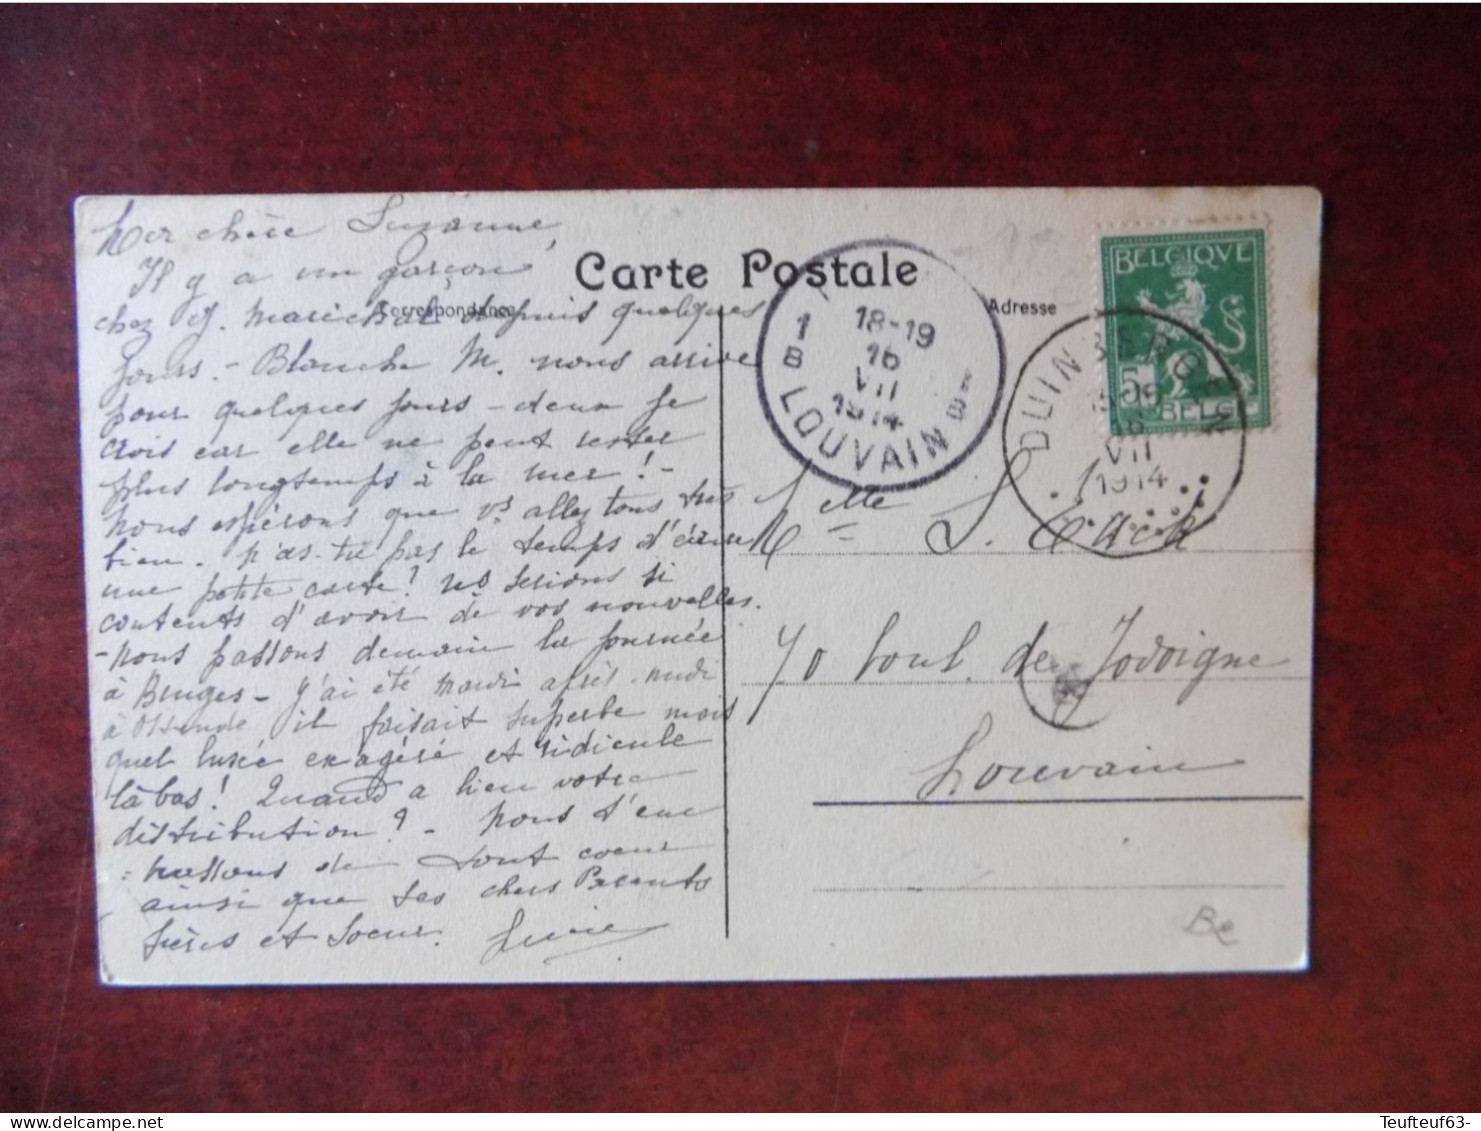 Ma chère Suzanne,
Il y a un garçon
chez M. Marichal depuis quelques
jours. - Blanche M. nous arrive
pour quelques jours - deux je
crois car elle ne peut rester
plus longtemps à la mer! -
Nous espérons que vs allez tous très
bien. N'as-tu pas le temps d'écrire
une petite carte? ns serions si
contents d'avoir de vos nouvelles.
- Nous passons demain la journée
à Bruges - J'ai été mardi après-midi
à Ostende il faisait superbe mais
quel luxe exagéré et ridicule
là bas! Quand a lieu votre
distribution? - Nous t'em
brassons de tout coeur
ainsi que tes chers Parents
frères et soeur.
Carte Postale
Correspondance
Adresse
1
B
18-19
16
VII
1914
LOUVAIN
BELGIQUE
5
BELGIË
DUINBERGEN
VII
1914
Melle S.
70 boul. de Jodoigne
Louvain
Be
Teufteuf63-